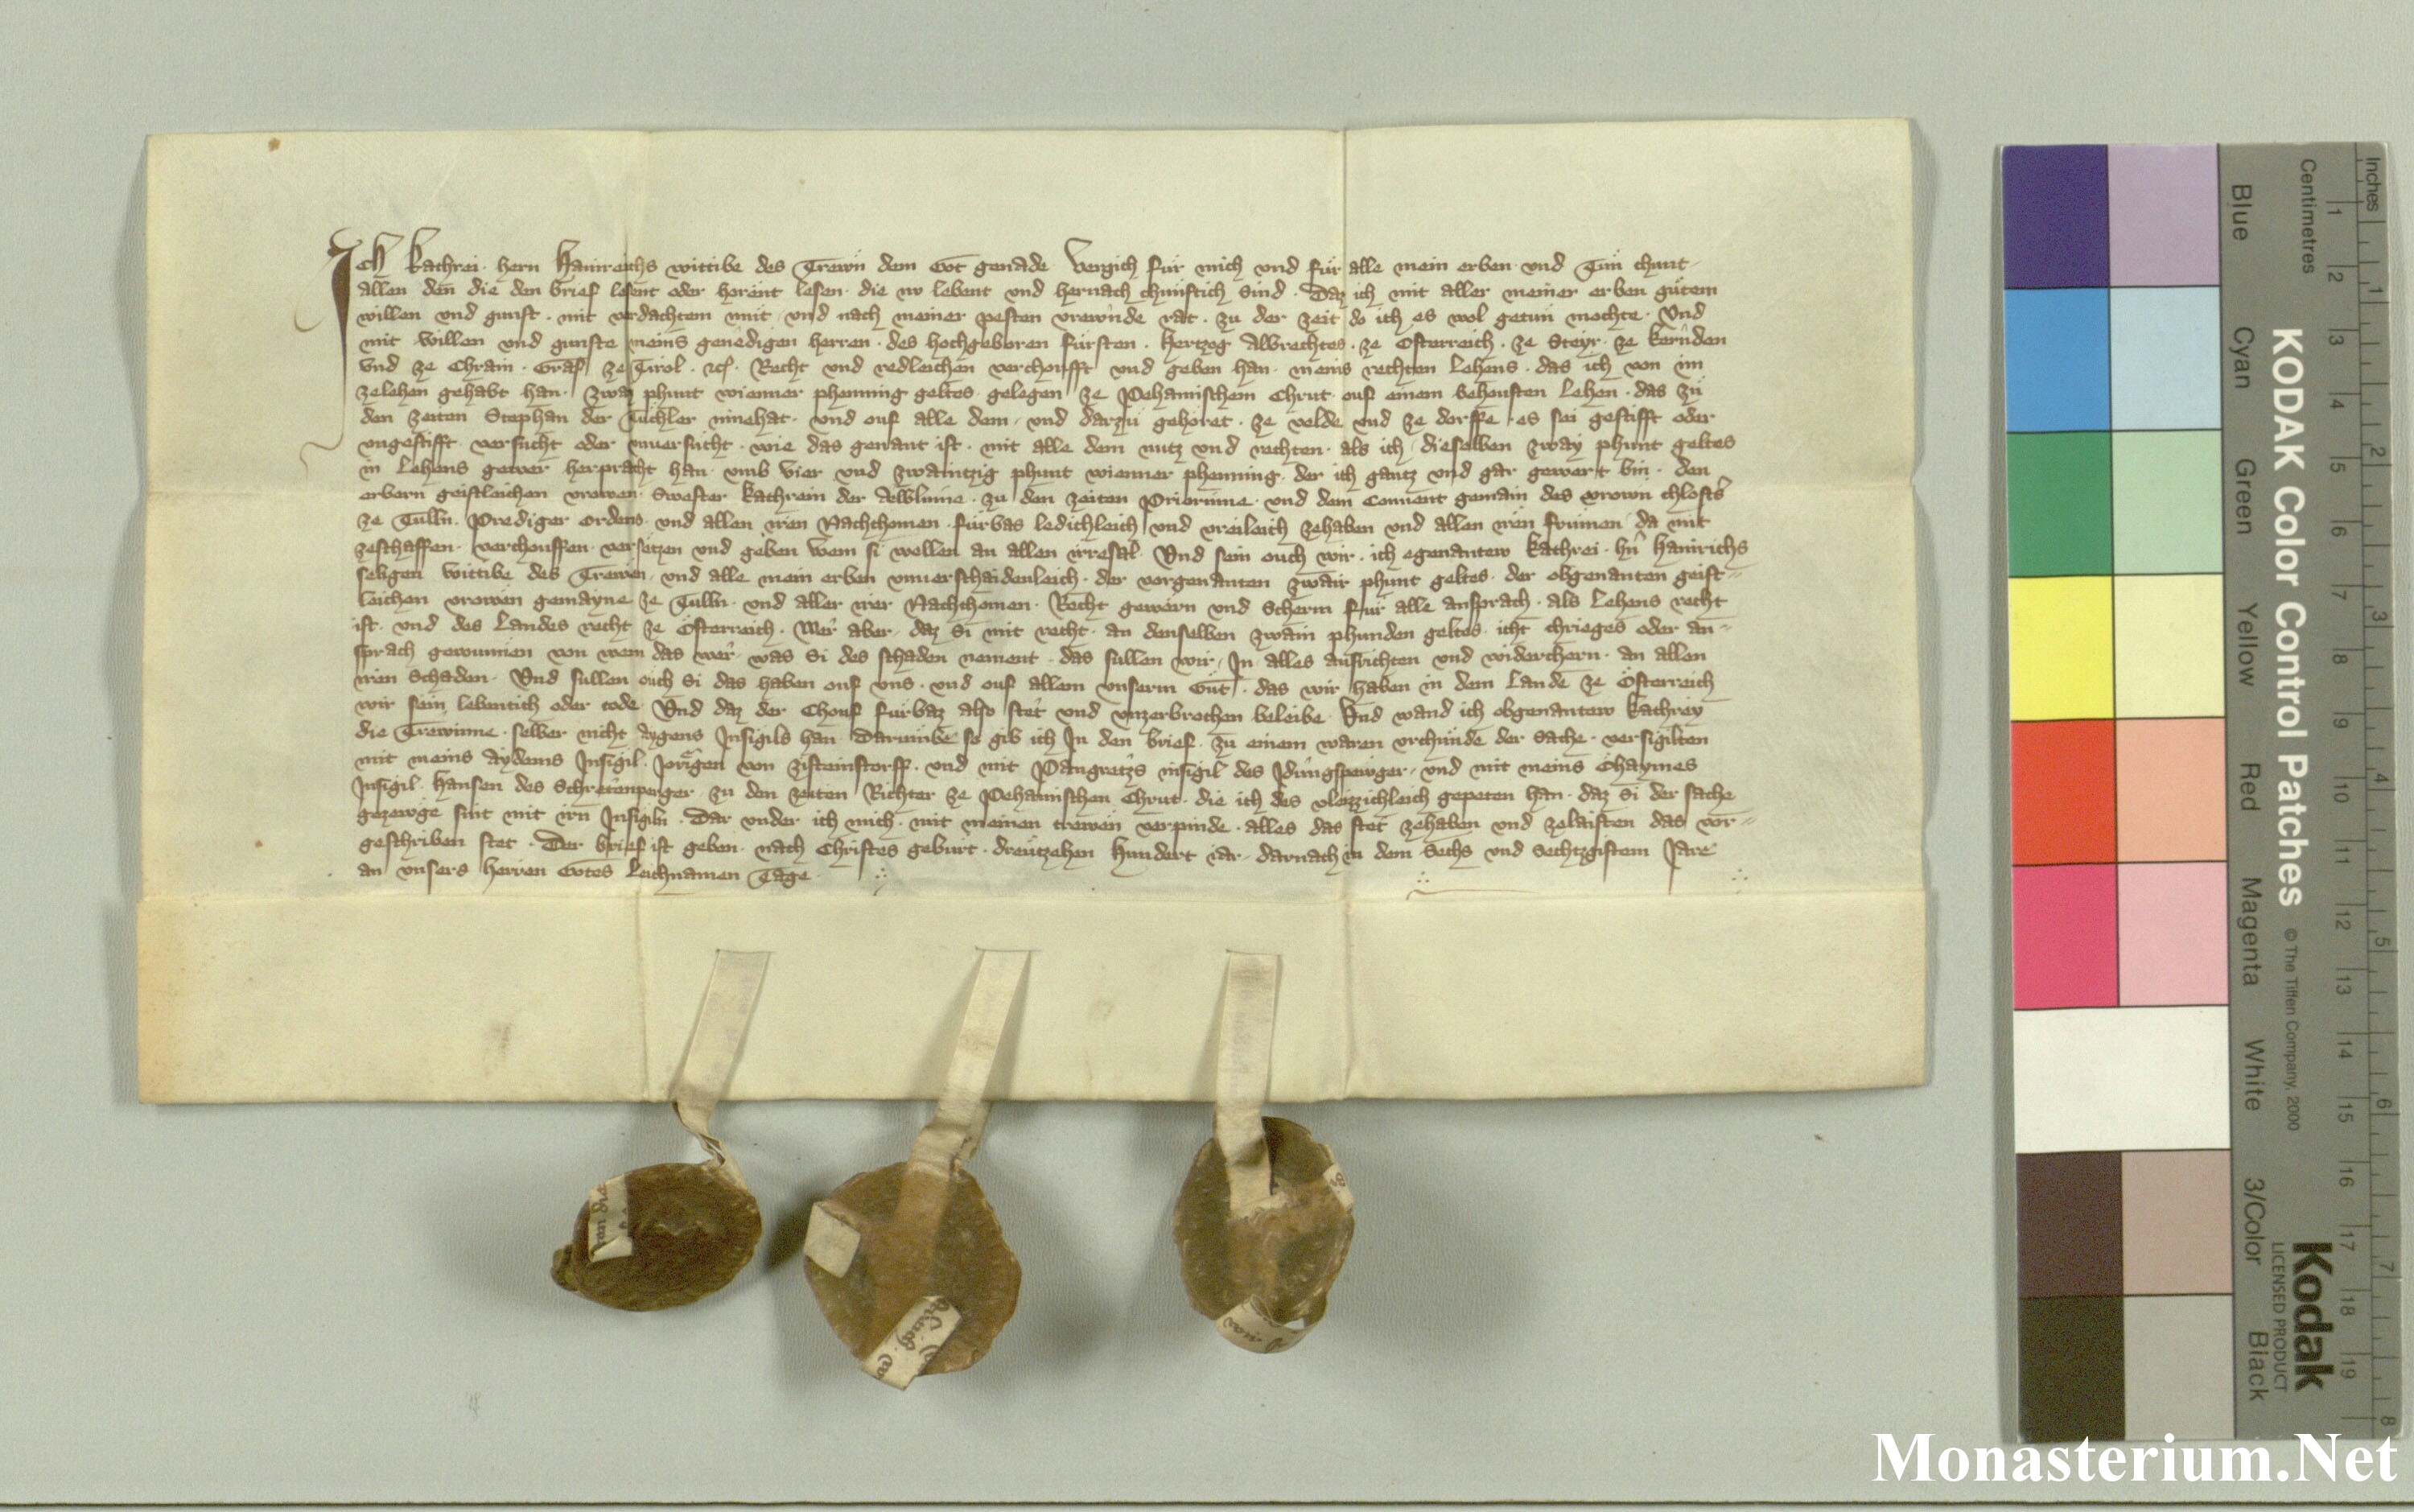 Ich kathrei hern Hainreichs wittibe des Trewn dem Got genade Vergich fur mich und fur alle mein erben und Tun chunt
allen den die den brief lesent oder horent lesen die nv lebent und hernach chunftich sind Daz ich mit aller meiner erben gutem
willen und gunst mit verdachtem mut und nach meiner pesten vrewnde rat zu der zeit do ich es wol getun mochte Und
mit willen und gunste meins genedigen herren des hochgeboren fursten Hertzog Albrechtes ze Osterreich ze Steyr ze kernden
Und ze Chrain Graf ze Tirol Recht und redleichen verchoufft und geben han meins rechten lehens das ich von im
zelehen gehabt han zway phunt wienner phenning geltes gelegen ze Pehamischem Chrut ouf einem behousten lehen das zu
den zeiten Stephan der innehat und ouf alle dem und darzu gehoret ze velde und ze dorffe es sei gestifft oder
ungestifft versucht oder unuersucht wie das genant ist mit alle dem nutz und rechten als ich dieselben zway phunt geltes
in lehens gewer herpracht han umb vier und zwaintzig phunt wienner phenning der ich gantz und gar gewert bin den
erbern geistleichen vrowen Swester kathrein der zu den zeiten Priorinne und dem Conuent gemain des vrown chlosters
ze Tulln Prediger ordens und allen iren Nachchomen furbas ledichleich und vreileich zehaben und allen iren frumen da mit
zeschaffen verchouffen versetzen und geben wem si wellen an allen irresal Und sein ouch wir ich egenantew kathrei hern Hainrichs
seligen wittibe des Trewen und alle mein erben unuerschaidenleich der vorgenanten zwair phunt geltes der obgenanten geist=
leichen vrowen gemayne ze Tulln und aller irer Nachchomen Recht gewern und scherm fur alle ansprach als lehens recht
ist und des landes recht ze Osterreich Wer aber daz si mit recht an denselben zwain phunden geltes icht chrieges oder an=
sprach gewunnen von wem das wer was si des schaden nement das sullen wir In alles ausrichten und widerchern an allen
iren schaden Und sullen ouch si das haben ouf uns und ouf allem unserm Gut das wir haben in dem lande ze Osterreich
wir sein lebentich oder tode Und daz der Chouf furbaz also stet und unzerbrochen beleibe Und wand ich obgenantew kathrey
die Trewinne selber nicht aygens Insigils han Darumbe so gib ich In den brief zu einem waren urchunde der sache versigilten
mit meins aydems Insigil Jorigen von Zisteinstorff und mit Pangretzs insigil des und mit meins ohaymes
Insigil Hansen des zu den zeiten Richter ze Pehamischen Chrut die ich des vleizzichleich gepeten han daz si der sache
gezewge sint mit irn Insigiln Dar under ich mich mit meinen trewen verpinde alles das stet zehaben und zelaisten das vor=
geschriben stet Der brief ist geben nach Christes geburt dreutzehen Hundert iar darnach in dem Sechs und Sechtzgistem Jare
an unsers herren Gotes leichnamen Tage
Inches
Centimetres
KODAK Color Control Patches
© The Tiffen Company, 2000
Kodak
LICENSED PRODUCT
Blue Cyan Green Yellow Red Magenta White 3/Color Black
1 2 3 4 5 6 7 8 9 10 11 12 13 14 15 16 17 18 19
1 2 3 4 5 6 7 8
Monasterium.Net